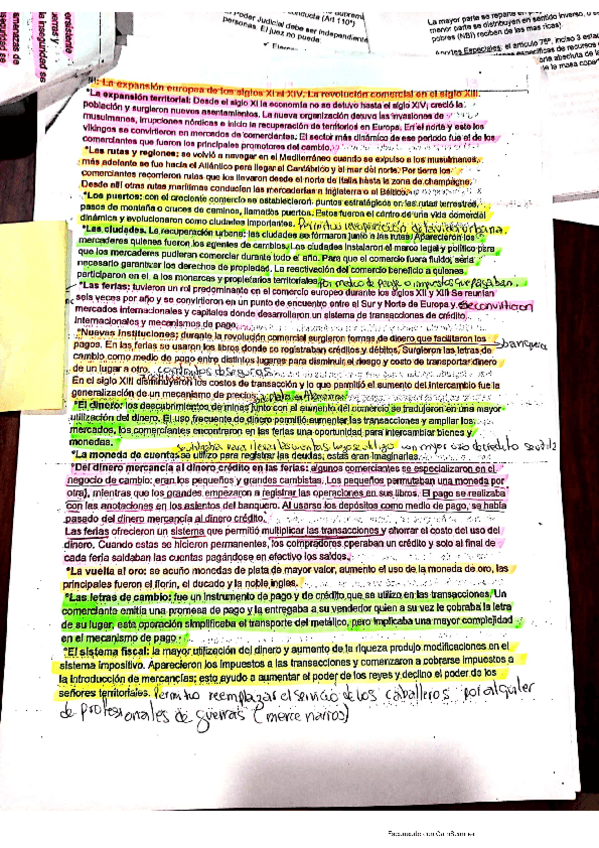 conducta (Art 110°)
Poder Judicial debe ser independiente
personas. El juez no pueda:
La mayor parte se reparte en
menor parte se distribuyen en sentido inverso, o
pobres (NBI) reciben de las mas ricas)
Aportes Especiales: el artículo 75º, inciso 3
específicas de recursos
III: La expansión europea de los siglos XI al XIV. La revolución comercial en el siglo XIII.
*La expansión territorial: Desde el siglo XI la economía no se detuvo hasta el siglo XIV, creció la
población y surgieron nuevos asentamientos. La nueva organización detuvo las invasiones de
musulmanes, irrupciones nórdicas e inicio la recuperación de territorios en Europa. En el norte y este los
vikingos se convirtieron en mercados de comerciantes. El sector más dinámico de ese periodo fue el de los
comerciantes que fueron los principales promotores del cambio.
*Las rutas y regiones: se volvió a navegar en el Mediterráneo cuando se expulso a los musulmanes,
más adelante se fue hacia el Atlántico para llegar el Cantábrico y al mar del norte. Por tierra los
comerciantes recorrieron rutas que los llevaron desde el norte de Italia hasta la zona de champagne.
Desde allí otras rutas marítimas conducían las mercaderías a Inglaterra o al Báltico.
*Los puertos: con el creciente comercio se establecieron puntos estratégicos en las rutas terrestres,
pasos de montaña o cruces de caminos, llamados puertos. Estos fueron el centro de una vida comercial
dinámica y evolucionaron como ciudades importantes. Permitio recuperación de la vida urbana.
*Las ciudades. La recuperación urbana: las ciudades se formaron junto a las rutas. Aparecieron los
mercaderes quienes fueron los agentes de cambios. Las ciudades instalaron el marco legal y político para
que los mercaderes pudieran comerciar durante todo el año. Para que el comercio fuera fluido, sería
necesario garantizar los derechos de propiedad. La reactivación del comercio beneficio a quienes
participaron en el, a los monarcas y propietarios territoriales. Por medio de pago o impuestos que pasaban.
*Las ferias: tuvieron un rol predominante en el comercio europeo durante los siglos XII y XIII Se reunían
seis veces por año y se convirtieron en un punto de encuentro entre el Sur y Norte de Europa y. Se convirtieron
mercados internacionales y capitales donde desarrollaron un sistema de transacciones de crédito
internacionales y mecanismos de pago.
*Nuevas Instituciones: durante la revolución comercial surgieron formas de dinero que facilitaron los
pagos. En las ferias se usaron los libros donde se registraban créditos y débitos. Surgieron las letras de
cambio como medio de pago entre distintos lugares para disminuir el riesgo y costo de transportar dinero
de un lugar a otro. contratos de seguros
En el siglo XIII disminuyeron los costos de transacción y lo que permitió el aumento del intercambio fue la
generalización de un mecanismo de precios.
*El dinero: los descubrimientos de minas junto con al aumento del comercio se tradujeron en una mayor
utilización del dinero. El uso frecuente de dinero permitió aumentar las transacciones y ampliar los
mercados, los comerciantes encontraron en las ferias una oportunidad para intercambiar bienes y
monedas.
*La moneda de cuenta: se utilizo para registrar las deudas, estas eran imaginarias.
*Del dinero mercancía al dinero crédito en las ferias: algunos comerciantes se especializaron en el
negocio de cambio: eran los pequeños y grandes cambistas. Los pequeños permutaban una moneda por
otra), mientras que los grandes empezaron a registrar las operaciones en sus libros. El pago se realizaba
con las anotaciones en los asientos del banquero. Al usarse los depósitos como medio de pago, se había
pasado del dinero mercancía al dinero crédito.
Las ferias ofrecieron un sistema que permitió multiplicar las transacciones y ahorrar el costo del uso del
dinero. Cuando estas se hicieron permanentes, los compradores operaban un crédito y solo al final de
cada feria saldaban las cuentas pagándose en efectivo los saldos.
*La vuelta al oro: se acuño monedas de plata de mayor valor, aumento el uso de la moneda de oro, las
principales fueron el florín, el ducado y la noble ingles.
*Las letras de cambio: fue un instrumento de pago y de crédito que se utilizo en las transacciones. Un
comerciante emitía una promesa de pago y la entregaba a su vendedor quien a su vez le cobraba la letra
de su lugar, esta operación simplificaba el transporte del metálico, pero implicaba una mayor complejidad
en el mecanismo de pago
*El sistema fiscal: la mayor utilización del dinero y aumento de la riqueza produjo modificaciones en el
sistema impositivo. Aparecieron los impuestos a las transacciones y comenzaron a cobrarse impuestos a
la introducción de mercancías; esto ayudo a aumentar el poder de los reyes y declino el poder de los
señores territoriales. Permitio reemplazar el servicio de los caballeros por alquiler
de profesionales de guerras (mercenarios)
Escaneado con CamScanner